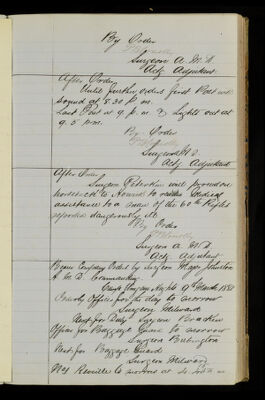 By Order
Surgeon A. M. D.
Actg Adjutant
After Order
Until further orders first Post will
sound at 8.30 P.m.
Last Post at 9. p. m. & Lights out at
9.5 p.m.
By Order
Surgeon A. M. D.
Actg Adjutant
After Order
Surgeon will proceed on
horseback to to Medical
assistance to a man of the 60th Rifles
reported dangerously ill
By Order
Surgeon A. M. D.
Actg Adjutant
Company Orders by Surgeon Major Johnston
A. M. D. Commanding
Camp 9th March 1881
Orderly Officer for the day to morrow
Surgeon Milward
Next for Duty Surgeon
Officer for Baggage Guard to morrow
Surgeon Babington
Next for Baggage Guard
Surgeon Milward
Reveille to morrow at